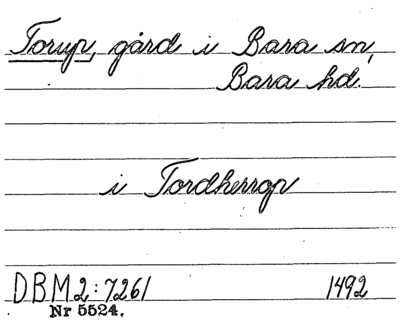 Torup, gård i Bara sn,
Bara hd.
i Tordherrop
DBM2:7261 1492
Nr 5524.